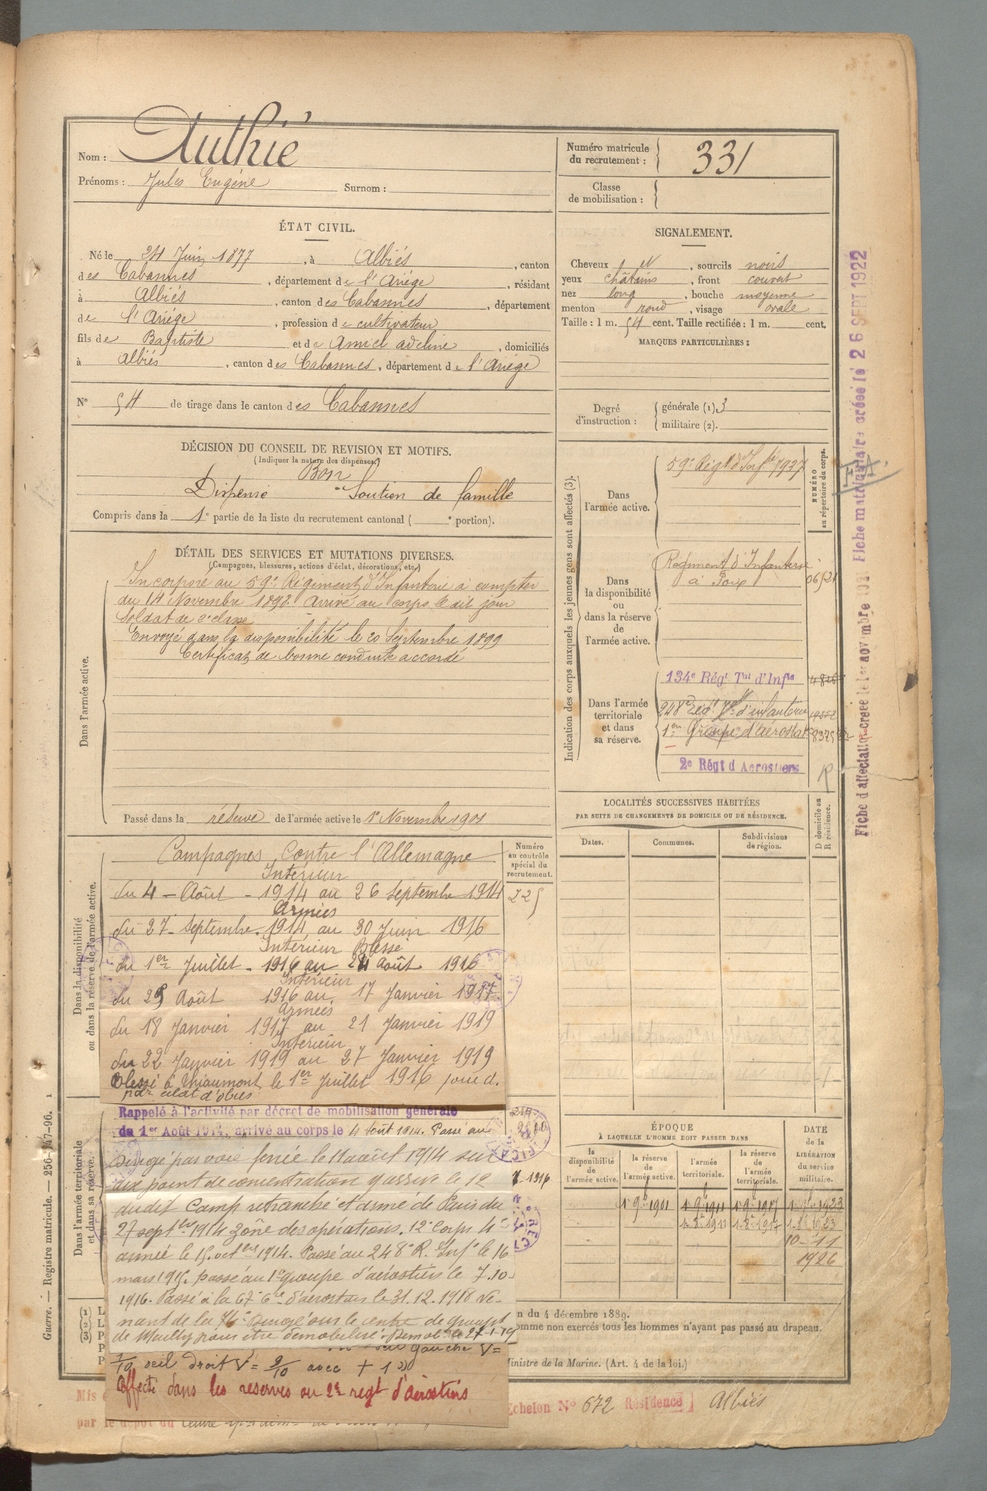 Nom : Authié
Prénoms : Jules Eugène Surnom :
Numéro matricule du recrutement : 331
Classe de mobilisation :
ÉTAT CIVIL.
Né le 24 Juin 1877, à Albiés, canton
des Cabannes, département de l'Ariège, résidant
à Albiés, canton des Cabannes, département
de l'Ariège, profession de cultivateur
fils de Baptiste et de Amiel adeline, domiciliés
à Albiés, canton des Cabannes, département de l'Ariège
N° 54 de tirage dans le canton des Cabannes
SIGNALEMENT.
Cheveux, sourcils noirs
yeux châtains, front couvert
nez long, bouche moyenne
menton rond, visage ovale
Taille : 1 m. 54 cent. Taille rectifiée : 1 m. cent.
MARQUES PARTICULIÈRES :
Degré d'instruction : générale (1). 3
militaire (2).
DÉCISION DU CONSEIL DE REVISION ET MOTIFS.
(Indiquer la nature des dispenses.)
Bon
Dispensé Soutien de famille
Compris dans la 1e partie de la liste du recrutement cantonal ( e portion).
DÉTAIL DES SERVICES ET MUTATIONS DIVERSES.
(Campagnes, blessures, actions d'éclat, décorations, etc.)
Dans l'armée active.
Incorporé au 59e Régiment d'Infanterie à compter
du 14 Novembre 1898. Arrivé au corps le dit jour
Soldat de 2e classe
Envoyé dans la disponibilité le 20 Septembre 1899
Certificat de bonne conduite accordé
Passé dans la réserve de l'armée active le 1er Novembre 1901
Indication des corps auxquels les jeunes gens sont affectés (3).
NUMÉRO au répertoire du corps.
Dans l'armée active.
59e Régt d'Inf
Dans la disponibilité ou dans la réserve de l'armée active.
Régiment d'Infanterie
à Foix
Dans l'armée territoriale et dans sa réserve.
134e Régt Tal d'Infie
248e d'infanterie
1er Groupe d'aérost
2e Régt d'Aerostiers
LOCALITÉS SUCCESSIVES HABITÉES
PAR SUITE DE CHANGEMENTS DE DOMICILE OU DE RÉSIDENCE.
Dates. Communes. Subdivisions de région. D domicile ou R résidence.
Numéro au contrôle spécial du recrutement.
225
Dans la disponibilité ou dans la réserve de l'armée active.
Campagnes Contre l'Allemagne
Intérieur
du 4 - Août - 1914 au 26 Septembre 1914
Armées
du 27 - Septembre - 1914 au 30 Juin 1916
Intérieur Blessé
du 1er Juillet - 1916 au 24 Août 1916
Intérieur
du 25 Août 1916 au 17 Janvier 1917
Armées
du 18 Janvier 1917 au 21 Janvier 1919
Intérieur
du 22 Janvier 1919 au 27 Janvier 1919
Blessé à Thiaumont le 1er Juillet 1916 joue d.
par éclat d'obus
Dans l'armée territoriale et dans sa réserve.
Rappelé à l'activité par décret de mobilisation générale
du 1er Août 1914, arrivé au corps le 4 Aout 1914. Passé au
Dirigé par voie ferrée le 11 août 1914 sur
du dit Camp retranché et armé de Paris du
27 septbre 1914 zône des opérations. 12e Corps 4e
armée le 15 octbre 1914. Passé au 248e R. Infie le 16
mars 1915. passé au 1er groupe d'aérostiers le 7.10
1916. Passé à la 67e Cie d'aérostiers le 31.12.1918 ve-
nant de la 76e Envoyé sur le centre de groupt
de Mailly pour être démobilisé. Démobé le 27-1-19
oeil gauche V=
/10 oeil droit V = 2/10 avec + 1
Affecté dans les réserves au 2e régt d'aérostiers
ÉPOQUE
À LAQUELLE L'HOMME DOIT PASSER DANS
la disponibilité de l'armée active. la réserve de l'armée active. l'armée territoriale. la réserve de l'armée territoriale.
DATE de la LIBÉRATION du service militaire.
10-11
1926
n du 4 décembre 1889.
omme non exercés tous les hommes n'ayant pas passé au drapeau.
inistre de la Marine. (Art. 4 de la loi.)
Echelon N° 672 Résidence Albiés
Fiche d'affectation créée le 1er novembre
Fiche matriculaire créée le 26 SEPT 1922
Guerre. — Registre matricule. — 256-147-96.